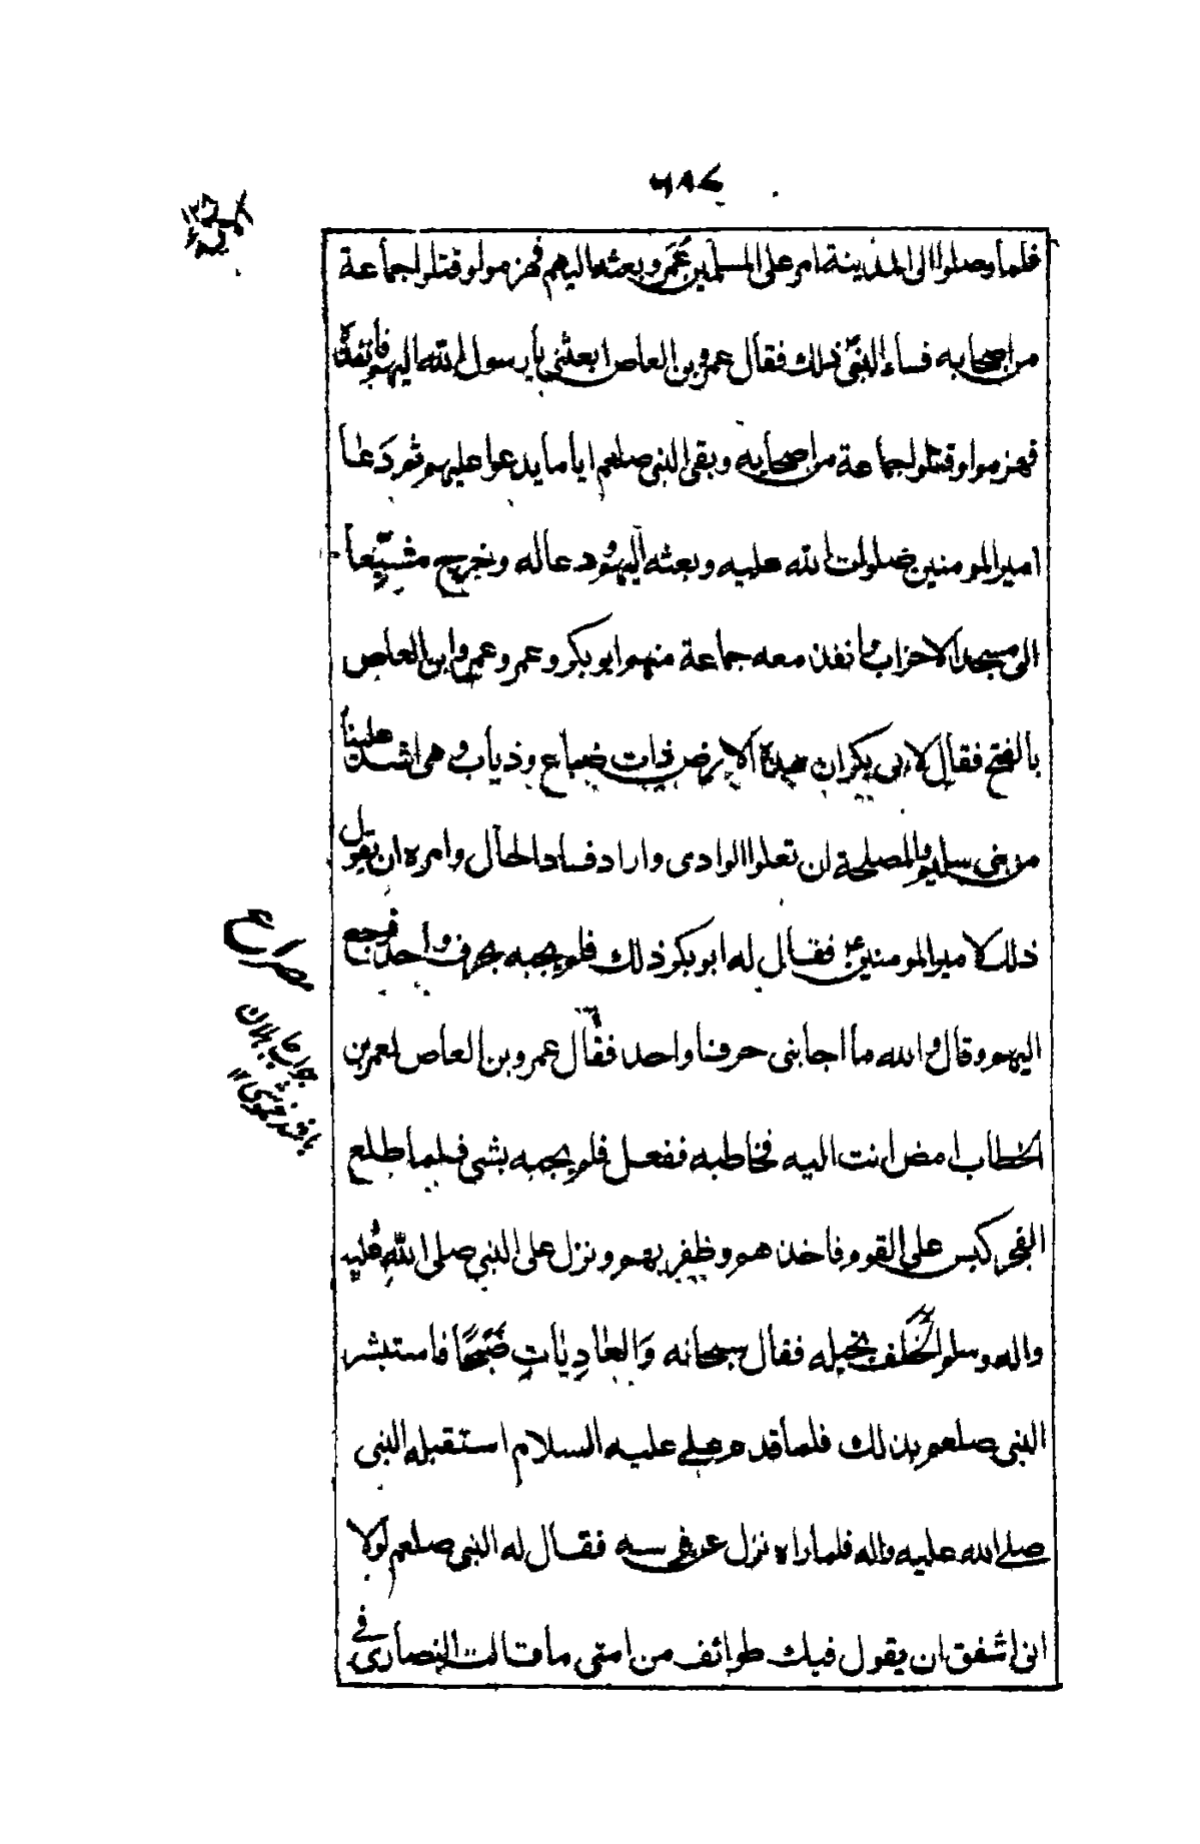 ٦٨٧
فلما وصلوا الى المدينة امر على المسلمين عمر وبعثه اليهم فهزموا وقتلوا جماعة
من اصحابه فساء النبى ذلك فقال عمرو بن العاص ابعثنى يا رسول الله اليهم فانفذه
فهزموا وقتلوا جماعة من اصحابه وبقى النبى صلعم اياما يدعوا عليهم ثم دعا
امير المومنين صلوات الله عليه وبعثه اليهم ودعا له وخرج مشيّعا
الى مسجد الاحزاب وانفذ معه جماعة منهم ابو بكر وعمر وعمرو ابن العاص
بالفتح فقال لابى بكر ان هذه الارض ذات ضباع وذياب وهى اشد علينا
من بنى سليم والمصلحة ان تعلوا الوادى واراد فساد الحال وامره ان يقول
ذلك لامير المومنين ع فقال له ابو بكر ذلك فلم يجبه بحرف واحد فرجع
اليهم وقال والله ما اجابنى حرفا واحدا فقال عمرو بن العاص لعمر بن
الخطاب امض انت اليه فخاطبه ففعل فلم يجبه بشى فلما طلع
الفجر كبس على القوم فاخذهم وظفر بهم ونزل على النبى صلى الله عليه
واله وسلم الحلف بخيله فقال سبحانه وَالعادِياتِ ضَبْحًا فاستبشر
النبى صلعم بذلك فلما قدم على عليه السلام استقبله النبى
صلى الله عليه واله فلما راه نزل عن فرسه فقال له النبى صلعم لولا
انى اشفق ان يقول فيك طوائف من امتى ما قالت النصارى فى